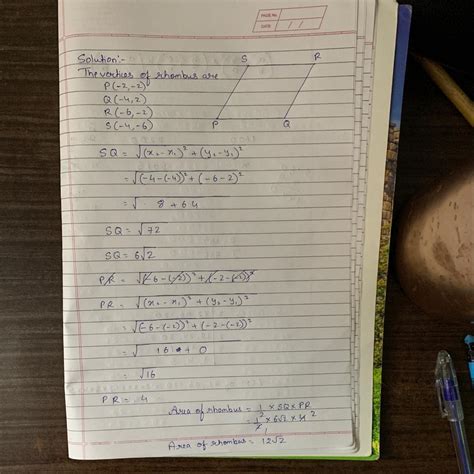 PAGE No.
DATE / /
Solution:-
The vertices of rhombus are
P(-2,-2)
Q(-4,2)
R(-6,-2)
S(-4,-6)
S R
P Q
SQ = √(x₂-x₁)² + (y₂-y₁)²
= √(-4-(-4))² + (-6-2)²
= √ 8 + 64
SQ = √72
SQ = 6√2
PR = √(-6-(-2))² + (-2-(-2))²
PR = √(x₂-x₁)² + (y₂-y₁)²
= √(-6-(-2))² + (-2-(-2))²
= √ 16 + 0
= √16
PR = 4
Area of rhombus = 1/2 × SQ × PR
= 1/2 × 6√2 × 4 2
1
Area of rhombus = 12√2